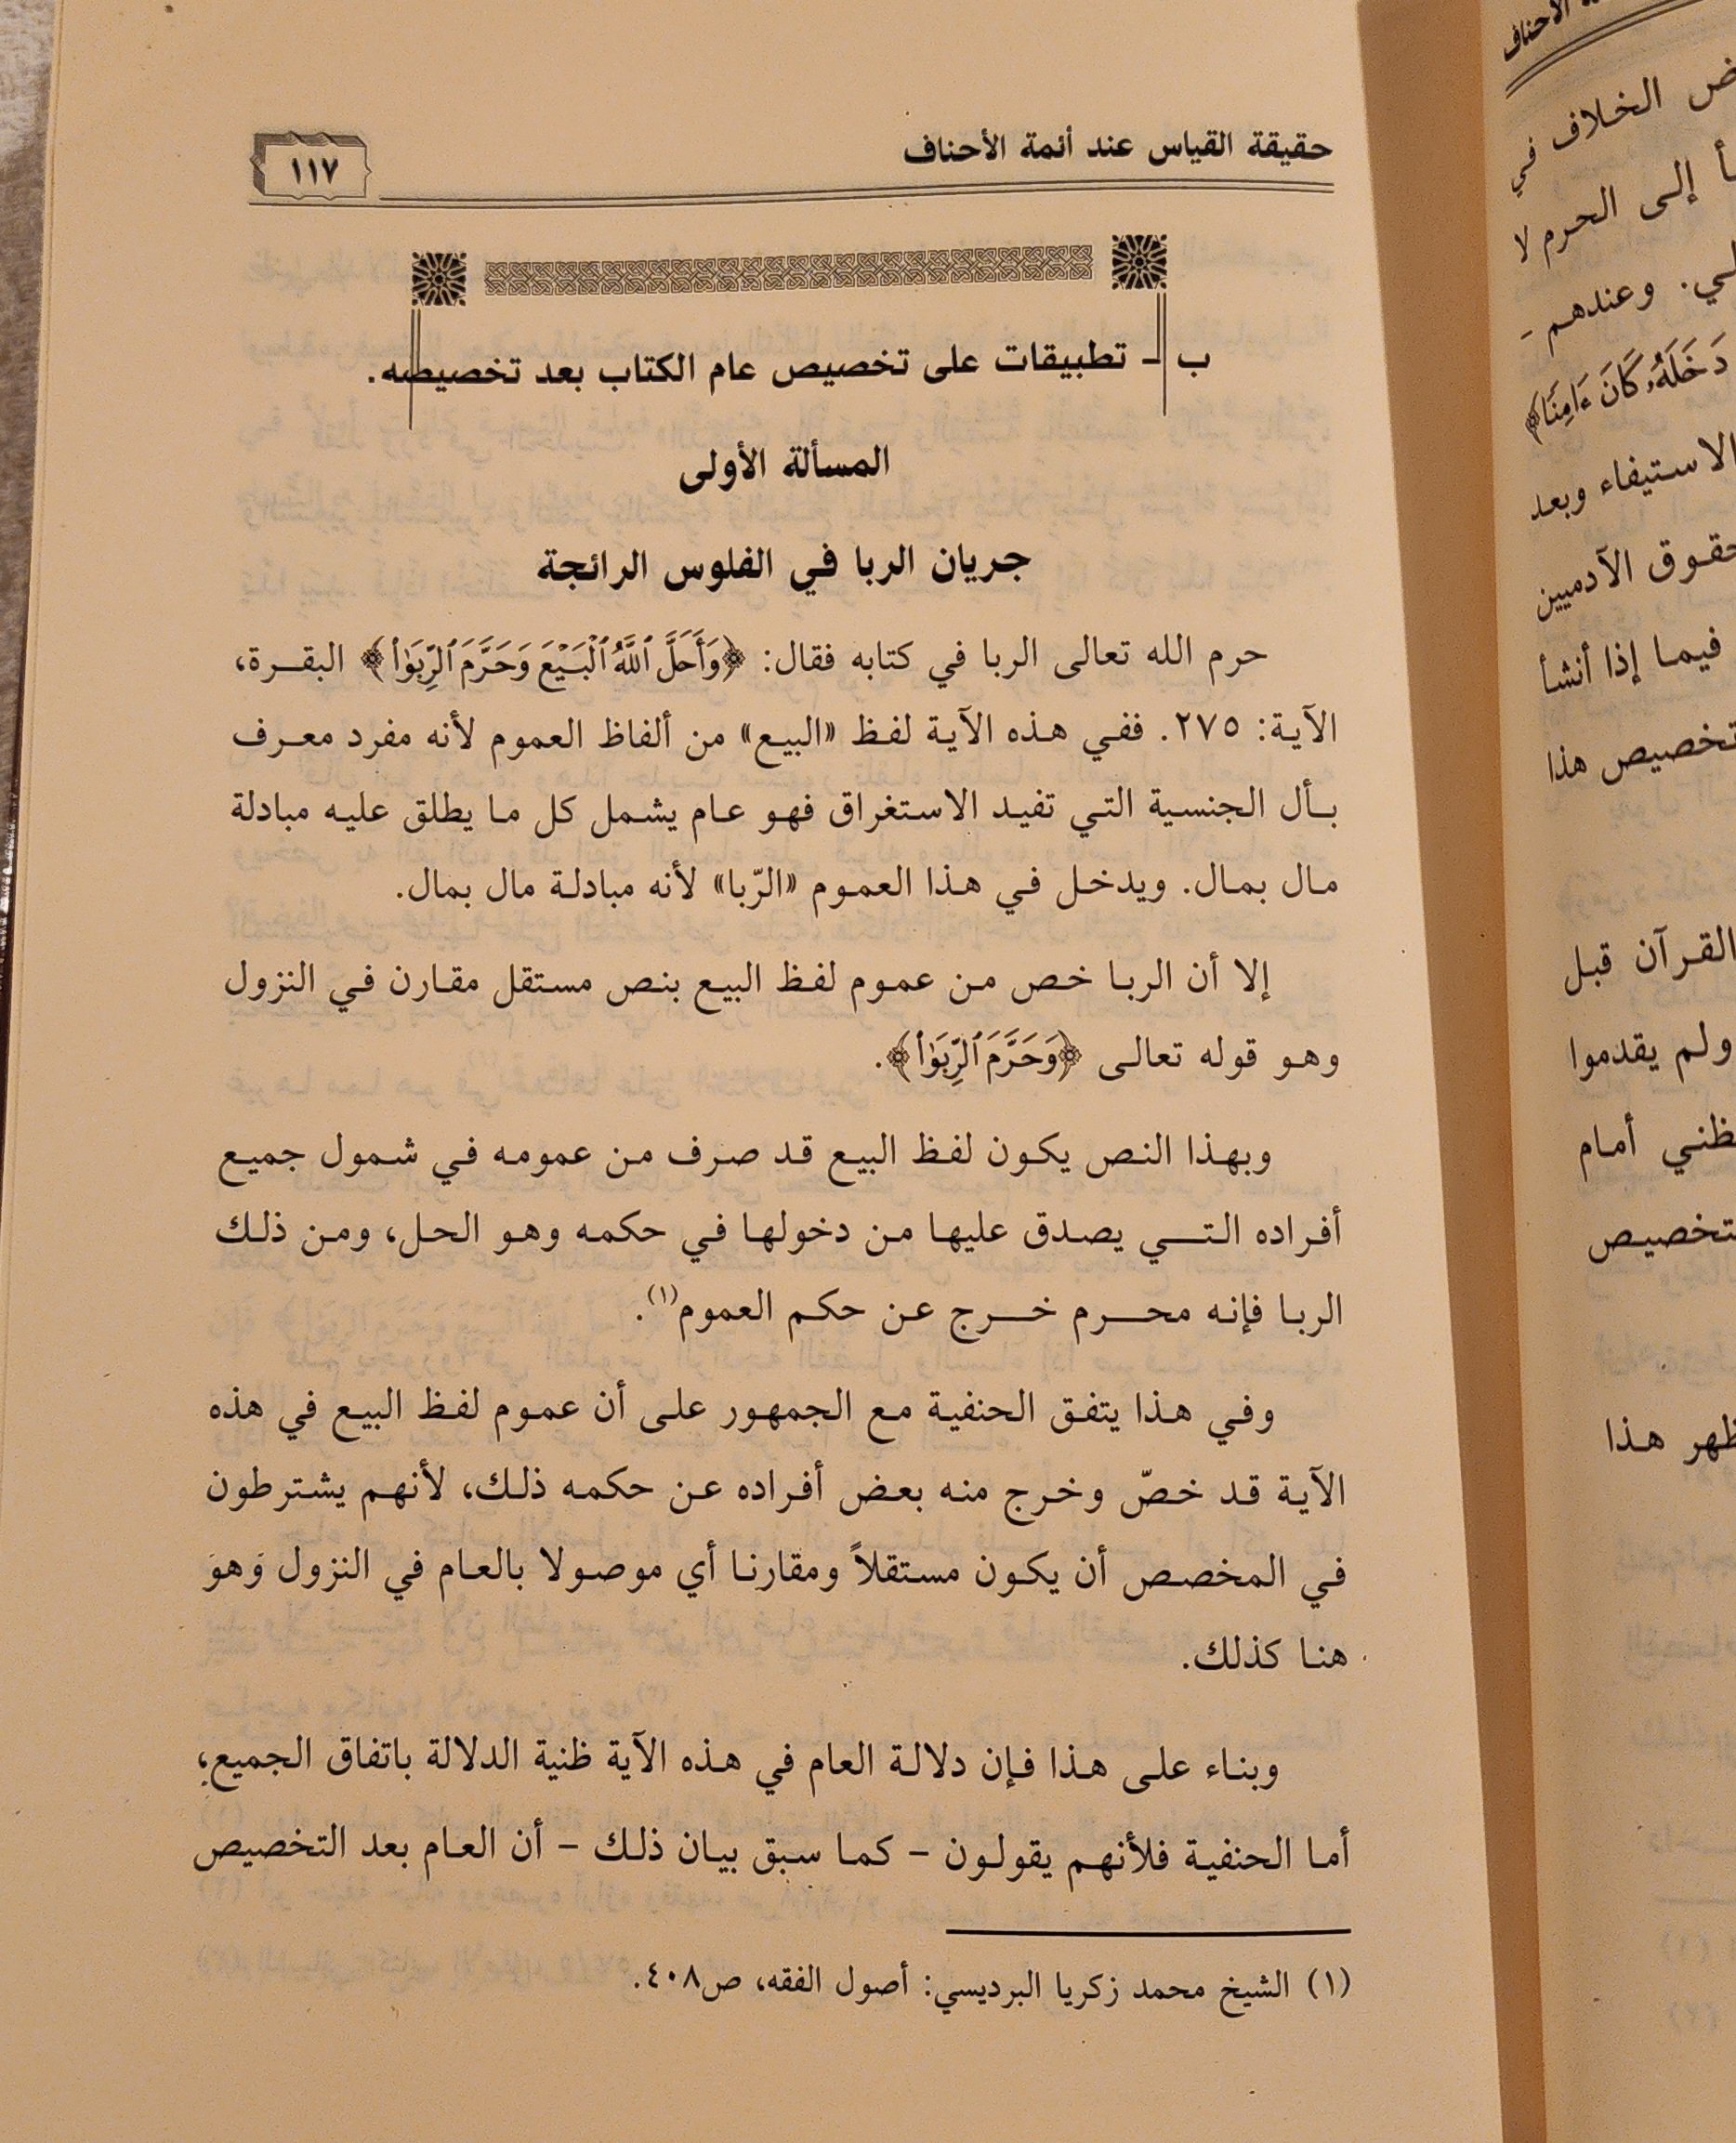 حقيقة القياس عند أئمة الأحناف
١١٧
ب - تطبيقات على تخصيص عام الكتاب بعد تخصيصه.
المسألة الأولى
جريان الربا في الفلوس الرائجة
حرم الله تعالى الربا في كتابه فقال: ﴿وَأَحَلَّ ٱللَّهُ ٱلْبَيْعَ وَحَرَّمَ ٱلرِّبَوٰا۟﴾ البقرة،
الآية: ٢٧٥. ففي هذه الآية لفظ «البيع» من ألفاظ العموم لأنه مفرد معرف
بأل الجنسية التي تفيد الاستغراق فهو عام يشمل كل ما يطلق عليه مبادلة
مال بمال. ويدخل في هذا العموم «الرّبا» لأنه مبادلة مال بمال.
إلا أن الربا خص من عموم لفظ البيع بنص مستقل مقارن في النزول
وهو قوله تعالى ﴿وَحَرَّمَ ٱلرِّبَوٰا۟﴾.
وبهذا النص يكون لفظ البيع قد صرف من عمومه في شمول جميع
أفراده التي يصدق عليها من دخولها في حكمه وهو الحل، ومن ذلك
الربا فإنه محرم خرج عن حكم العموم(١).
وفي هذا يتفق الحنفية مع الجمهور على أن عموم لفظ البيع في هذه
الآية قد خصّ وخرج منه بعض أفراده عن حكمه ذلك، لأنهم يشترطون
في المخصص أن يكون مستقلاً ومقارنا أي موصولا بالعام في النزول وَهوَ
هنا كذلك.
وبناء على هذا فإن دلالة العام في هذه الآية ظنية الدلالة باتفاق الجميع؛
أما الحنفية فلأنهم يقولون - كما سبق بيان ذلك - أن العام بعد التخصيص
(١) الشيخ محمد زكريا البرديسي: أصول الفقه، ص٤٠٨.
الأحناف
الخلاف في
إلى الحرم لا
وعندهم -
دَخَلَهُۥ كَانَ ءَامِنًا﴾
الاستيفاء وبعد
حقوق الآدميين
فيما إذا أنشأ
تخصيص هذا
القرآن قبل
ولم يقدموا
أمام
هذا